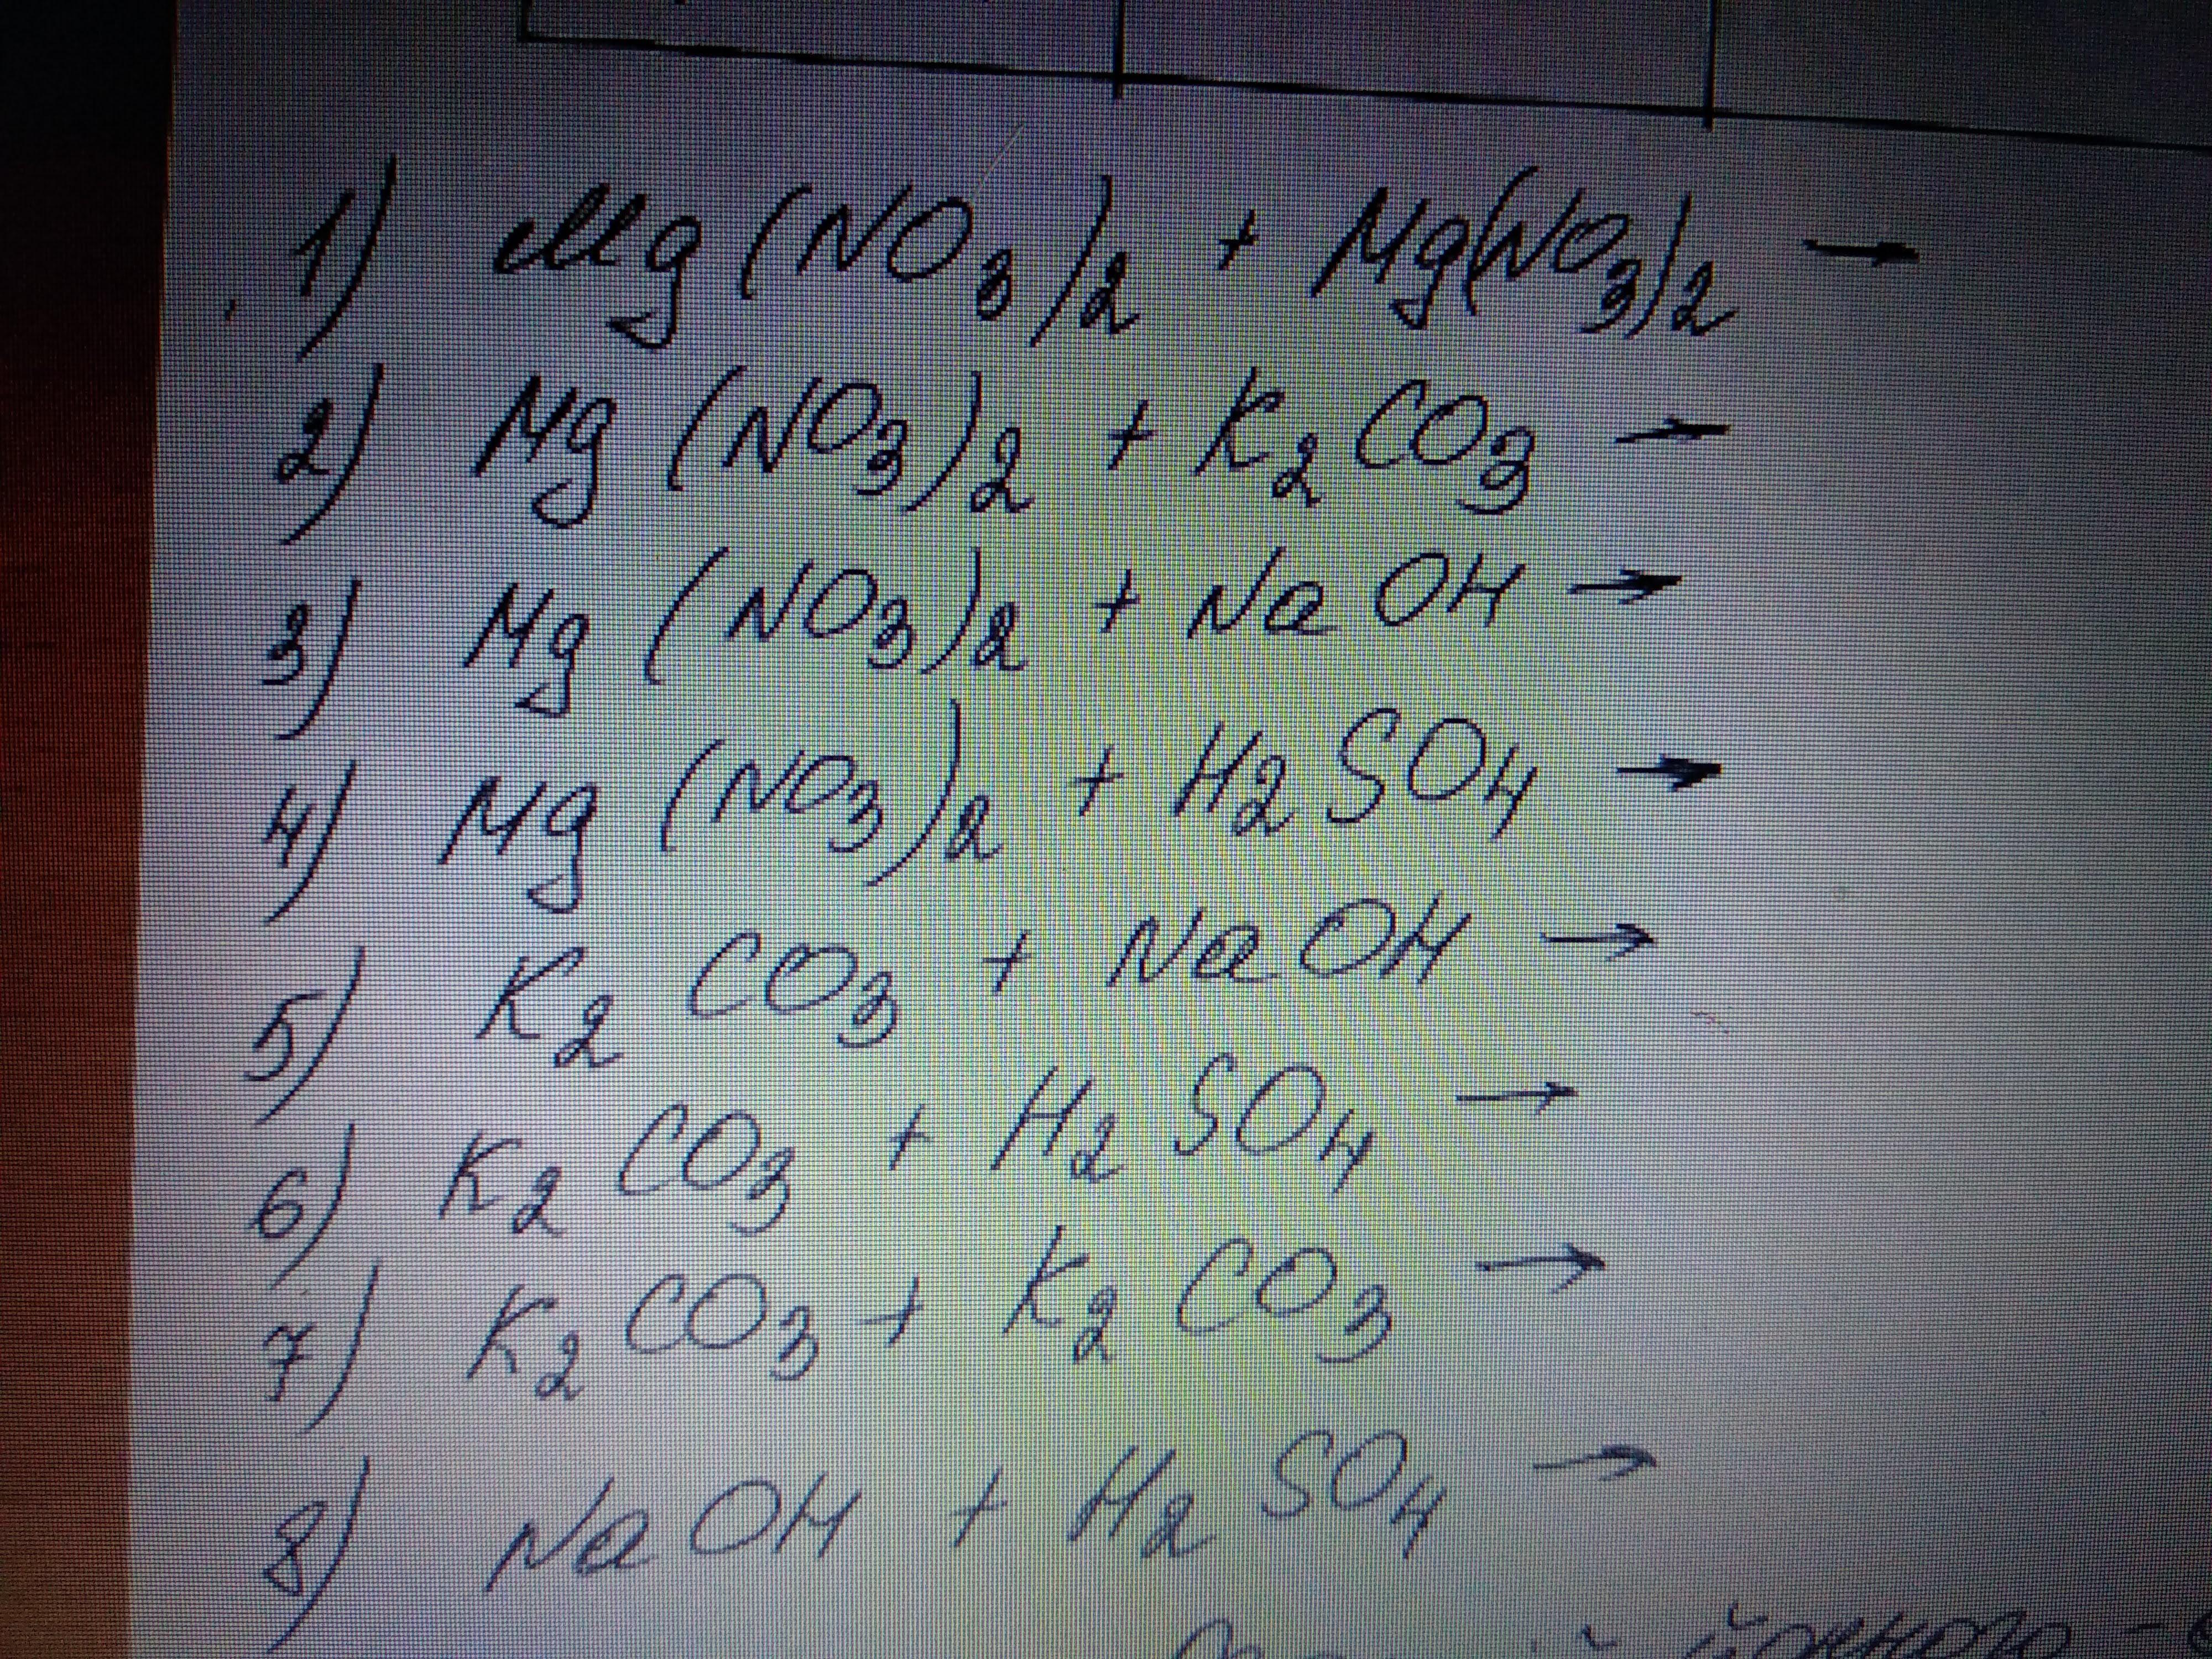 1) Mg(NO3)2 + Mg(NO3)2 →
2) Mg(NO3)2 + K2CO3 →
3) Mg(NO3)2 + NaOH →
4) Mg(NO3)2 + H2SO4 →
5) K2CO3 + NaOH →
6) K2CO3 + H2SO4 →
7) K2CO3 + K2CO3 →
8) NaOH + H2SO4 →